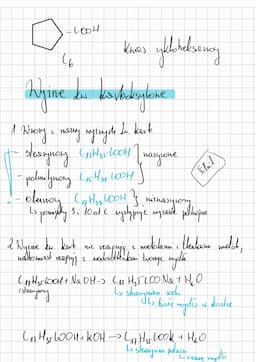 COOH
C₆
Kwas cykloheksanowy
Wyższe kw karboksylowe
1. Wzory i nazwy wyższych kw karb
- stearynowy C₁₇H₃₅COOH } nasycone
- palmitynowy C₁₅H₃₁COOH
- oleinowy C₁₇H₃₃COOH } nienasycony
↳ pomiędzy 9 i 10 at C występuje wiązanie podwójne
2. Wyższe kw karb nie reagują z metalami i tlenkami metali,
natomiast reagują z wodorotlenkami tworząc mydła
C₁₇H₃₅COOH + NaOH → C₁₇H₃₅COONa + H₂O
(stearynowy) ↳ stearynian sodu
↳ białe mydło w kostce
C₁₇H₃₅COOH + KOH → C₁₇H₃₅COOK + H₂O
↳ stearynian potasu
↳ mydło